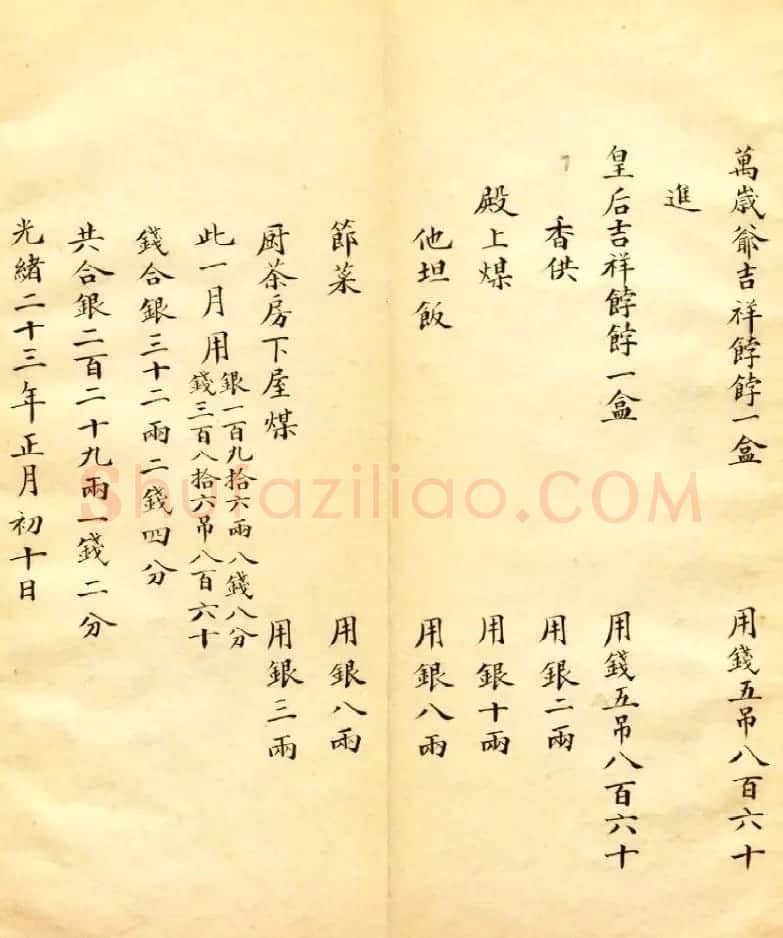 萬歲爺吉祥餑餑一盒 用錢五吊八百六十
進
皇后吉祥餑餑一盒 用錢五吊八百六十
香供 用銀二兩
殿上煤 用銀十兩
他坦飯 用銀八兩
節菜 用銀八兩
厨茶房下屋煤 用銀三兩
此一月用
銀一百九拾六兩八錢八分
錢三百八拾六吊八百六十
錢合銀三十二兩二錢四分
共合銀二百二十九兩一錢二分
光緒二十三年正月初十日
Shufaziliao.COM